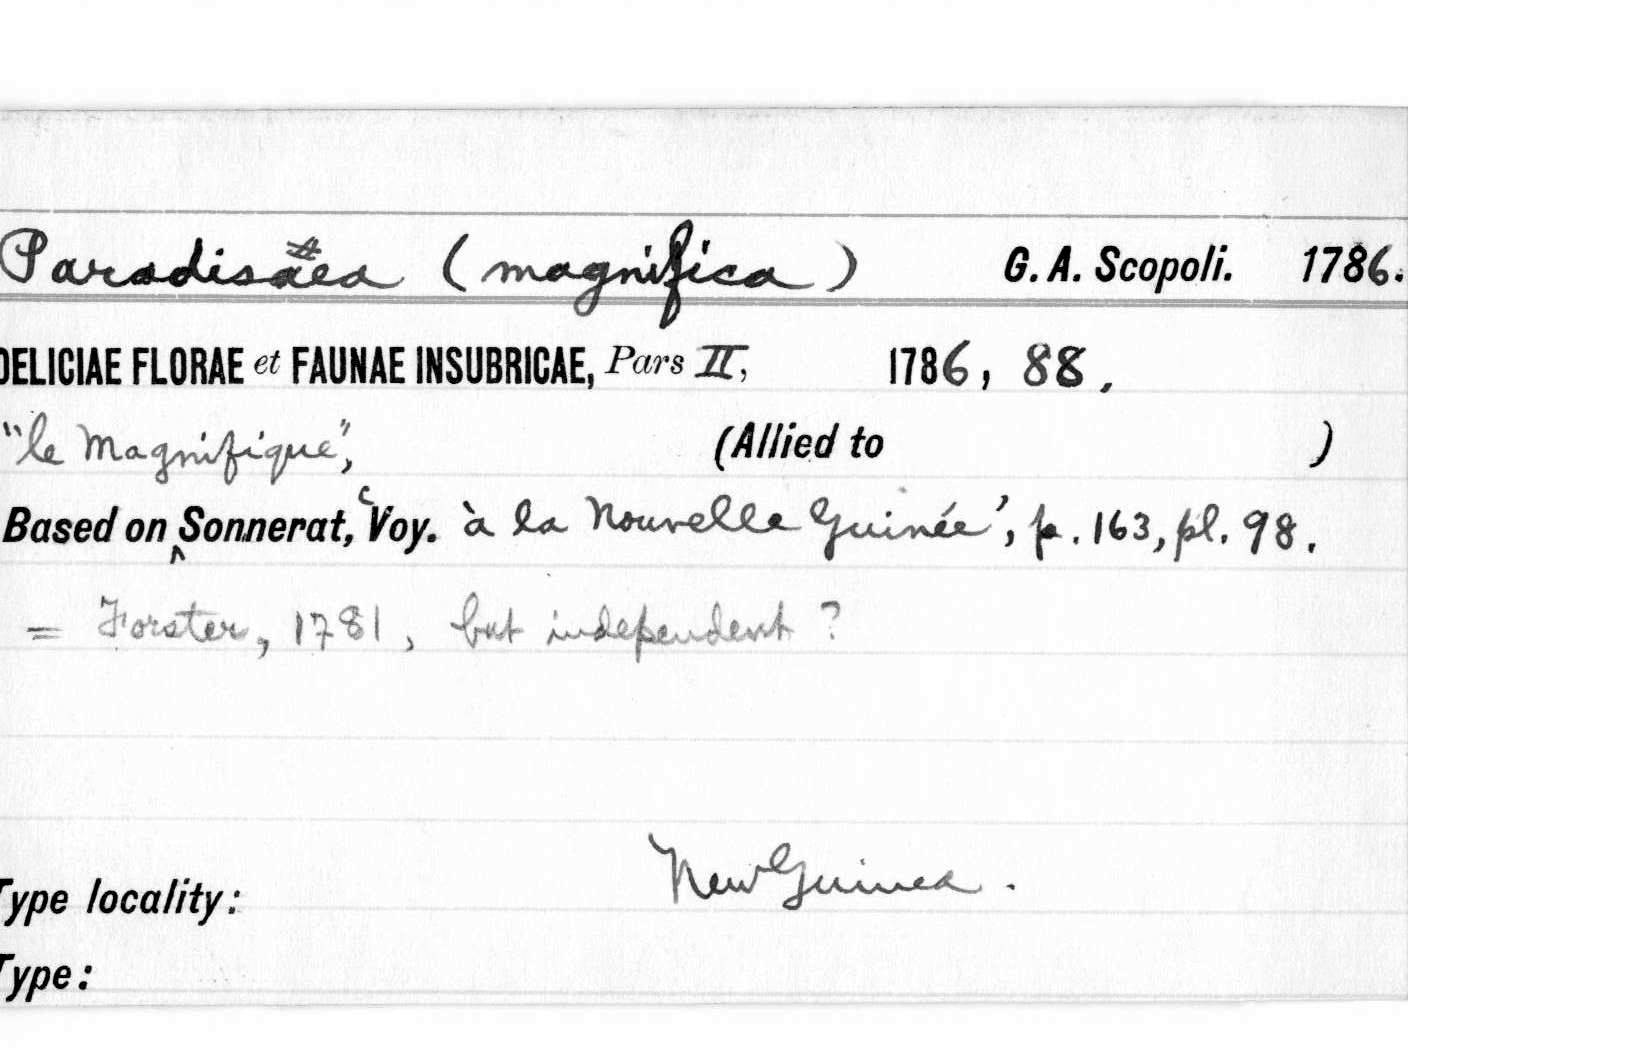 Paradisaea (magnifica) G. A. Scopoli. 1786.
DELICIAE FLORAE et FAUNAE INSUBRICAE, Pars II, 1786, 88,
"le Magnifique", (Allied to )
Based on ^ Sonnerat, 'Voy. à la Nouvelle Guinée', p. 163, pl. 98.
= Forster, 1781, but independent?
Type locality: New Guinea.
Type: